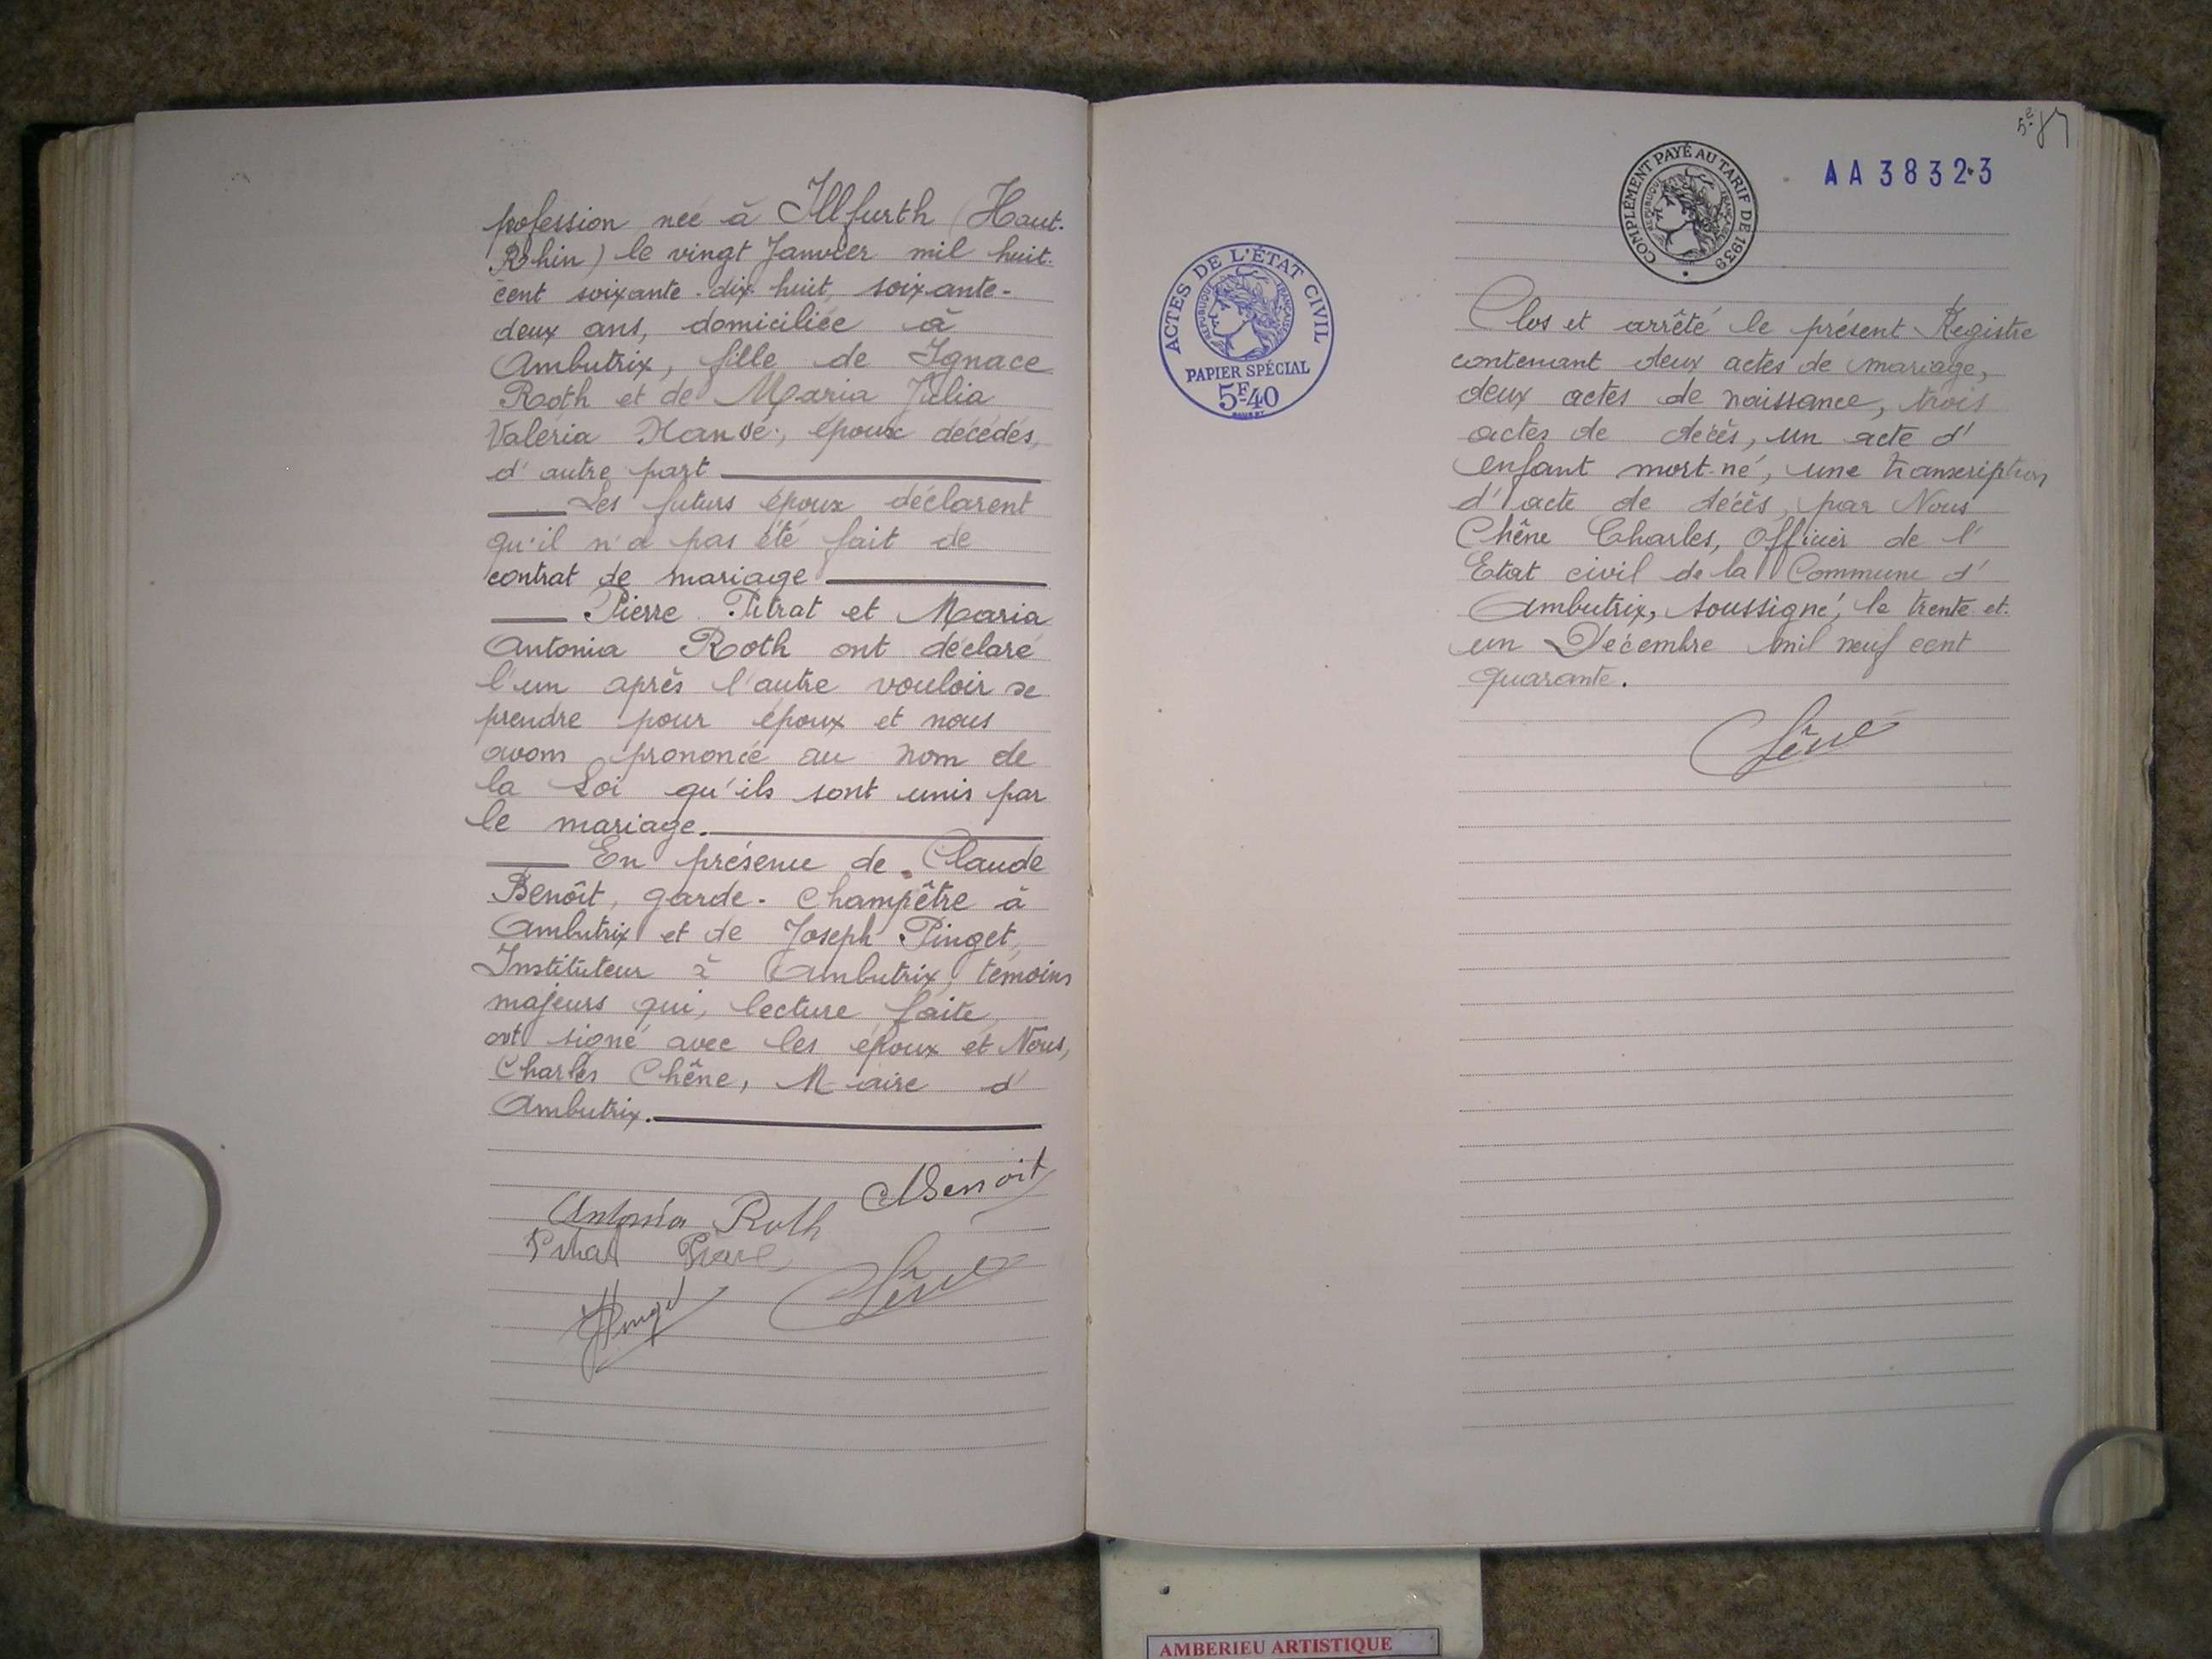 profession née à Illfurth (Haut-
Rhin) le vingt Janvier mil huit-
cent soixante-dix-huit, soixante-
deux ans, domiciliée à
Ambutrix, fille de Ignace
Roth et de Maria Julia
Valeria époux décédés,
d'autre part
Les futurs époux déclarent
qu'il n'a pas été fait de
contrat de mariage
Pierre Pitrat et Maria
Antonia Roth ont déclaré
l'un après l'autre vouloir se
prendre pour époux et nous
avons prononcé au nom de
la Loi qu'ils sont unis par
le mariage.
En présence de Claude
Benoît, garde-champêtre à
Ambutrix et de Joseph Pinget,
Instituteur à Ambutrix, témoins
majeurs qui, lecture faite,
ont signé avec les époux et Nous,
Charles Chêne, Maire d'
Ambutrix.
Benoit
Antonia Roth
Pitrat Pierre
Chêne
Pinget
5e
AA 38323
COMPLÉMENT PAYÉ AU TARIF DE 1939
RÉPUBLIQUE FRANÇAISE
ACTES DE L'ÉTAT CIVIL
RÉPUBLIQUE FRANÇAISE
PAPIER SPÉCIAL
5F40
Clos et arrêté le présent Registre
contenant deux actes de mariage,
deux actes de naissance, trois
actes de décès, un acte d'
enfant mort-né, une transcription
d'acte de décès, par Nous
Chêne Charles, Officier de l'
Etat civil de la Commune d'
Ambutrix, soussigné, le trente et
un Décembre mil neuf cent
quarante.
Chêne
AMBERIEU ARTISTIQUE